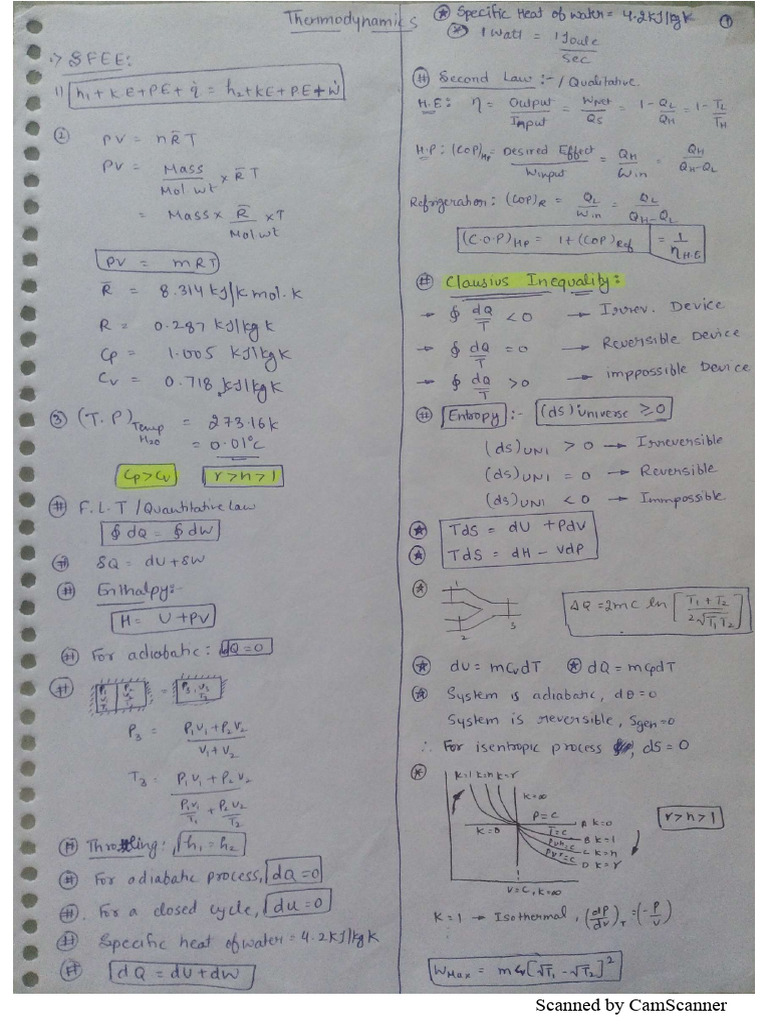 Thermodynamics
1
.> SFEE:
1) h₁+KE+PE+q̇ = h₂+KE+PE+ẇ
② PV = nR̄T
PV = Mass/Mol wt × R̄T
= Mass × R̄/Mol wt × T
PV = mRT
R̄ = 8.314 kJ/k mol.k
R = 0.287 kJ/kg k
Cp = 1.005 kJ/kg k
Cv = 0.718 kJ/kg k
③ (T.P) Temp H₂O = 273.16k
= 0.01°C
Cp>Cv r>n>1
# F.L.T /Quantitative Law
∮dQ = ∮dW
# δQ = dU+δW
# Enthalpy:-
H = U+PV
# For adiabatic: dQ=0
# P₁ V₁ T₁ P₂ V₂ T₂ = P₃, V₃ T₃
P₃ = P₁V₁+P₂V₂ / V₁+V₂
T₃ = P₁V₁+P₂V₂ / P₁V₁/T₁ + P₂V₂/T₂
# Throttling: h₁=h₂
# For adiabatic process, dQ=0
# For a closed cycle, du=0
# Specific heat of water=4.2KJ/kgK
# dQ = dU+dW
⊛ Specific Heat of water = 4.2kJ/kgK
⊛ 1 Watt = 1 Joule/Sec
# Second Law:-/Qualitative.
H.E: η = Output/Input = WNet/QS = 1-QL/QH = 1-TL/TH
H.P: (COP)HP = Desired Effect/Winput = QH/Win = QH/QH-QL
Refrigeration: (COP)R = QL/Win = QL/QH-QL
(C.O.P)HP = 1+(COP)Ref = 1/ηH.E
# Clausius Inequality:
→ ∮ dQ/T <0 → Irrev. Device
→ ∮ dQ/T =0 → Reversible Device
→ ∮ dQ/T >0 → imppossible Device
# Entropy:- (ds)universe ≥0
(ds)UNI > 0 → Irreversible
(ds)UNI = 0 → Reversible
(ds)UNI < 0 → Immpossible.
⊛ TdS = dU +Pdv
⊛ TdS = dH - vdP
⊛ 1 2 3 ΔQ=2mc ln [T₁+T₂ / 2√T₁T₂]
⊛ dU=mCvdT ⊛ dQ=mCpdT
⊛ System is adiabatic, dθ=0
System is reversible, Sgen=0
∴ For isentropic process, dS=0
⊛ K=1 K=n K=r
K=∞
P=C A K=0
K=0 T=C B K=1
C K=n
D K=r
V=C, K=∞
r>n>1
K=1 → Isothermal, (dP/dv)T=(-P/V)
WMax = mCp[√T₁-√T₂]²
Scanned by CamScanner